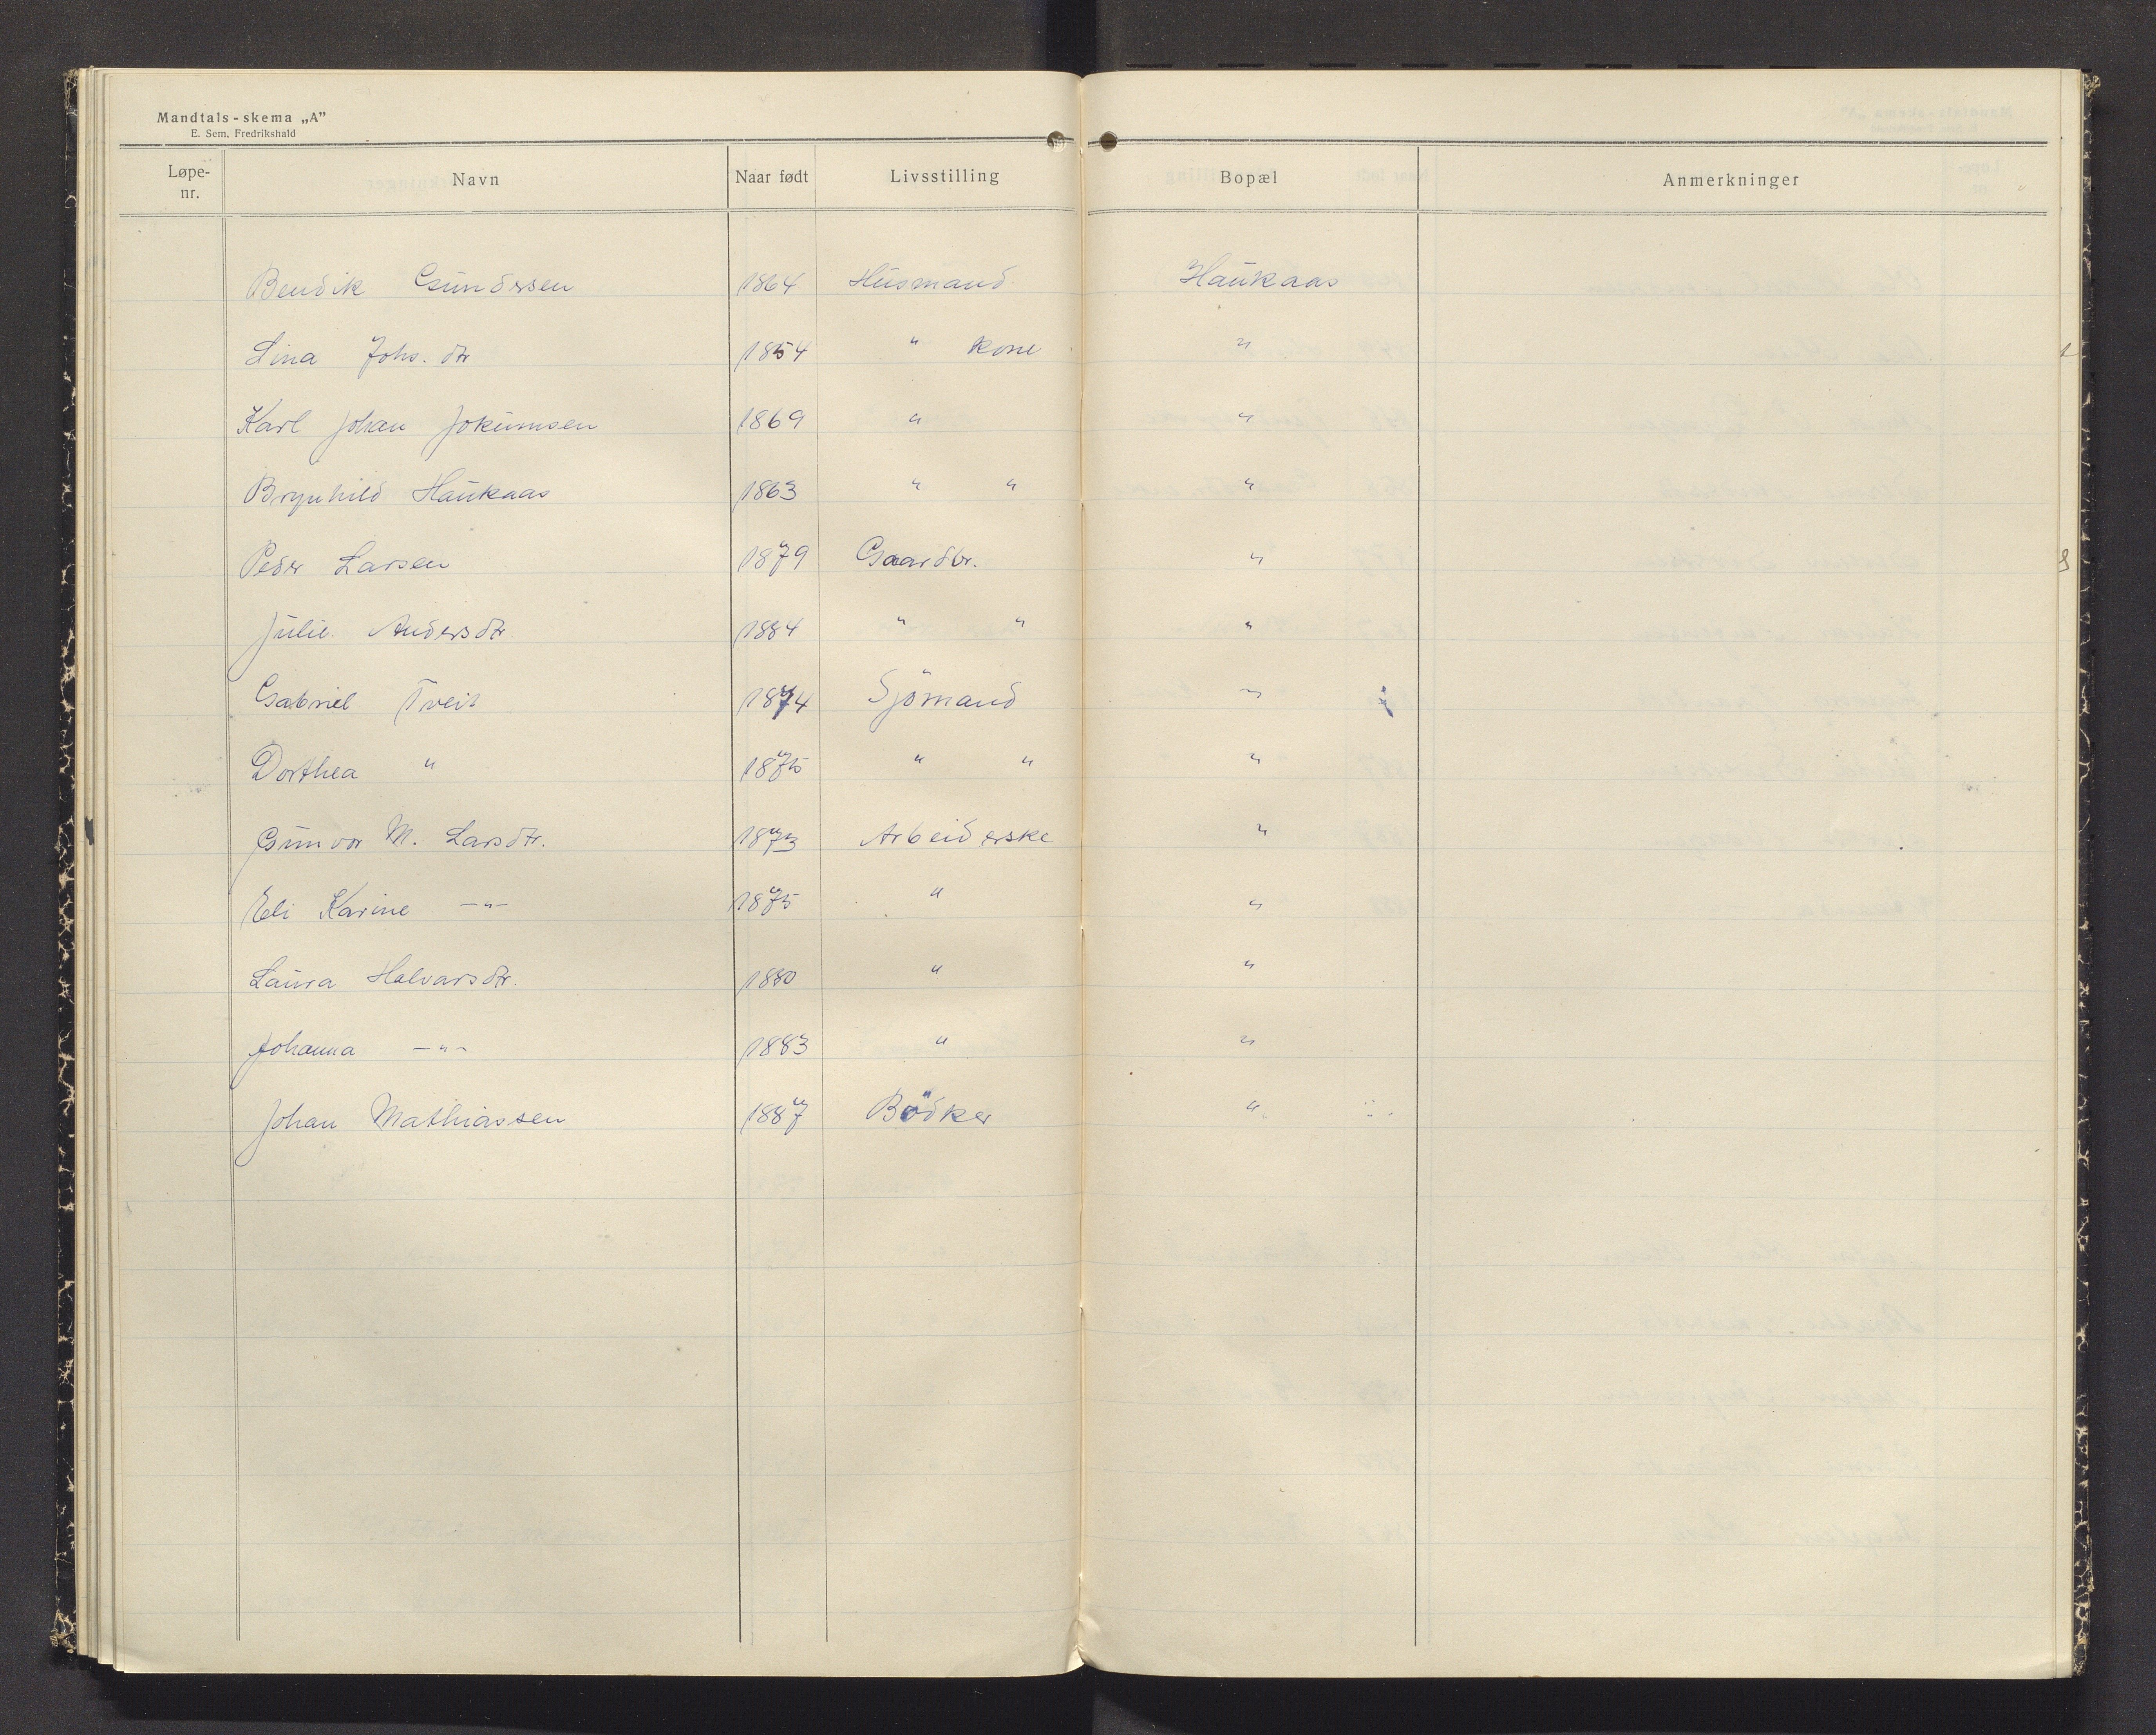 Mandtals-skema „A”
E. Sem. Fredrikshald
Løpe-nr. Navn Naar født Livsstilling Bopæl Anmerkninger
Bendik Gundersen 1864 Husmand Haukaas
Lina Johs. dtr 1854 " kone "
Karl Johan Jokumsen 1869 " "
Brynhild Haukaas 1863 " " "
Peder Larsen 1879 Gaardbr. "
Julie Andersdtr 1884 " " "
Gabriel Tveit 1874 Sjömand "
Dorthea " 1875 " " "
Gunvor M. Larsdtr. 1873 Arbeiderske "
Eli Karine -"- 1875 " "
Laura Halvarsdtr. 1880 " "
Johanna -"- 1883 " "
Johan Mathiassen 1887 Bödker "